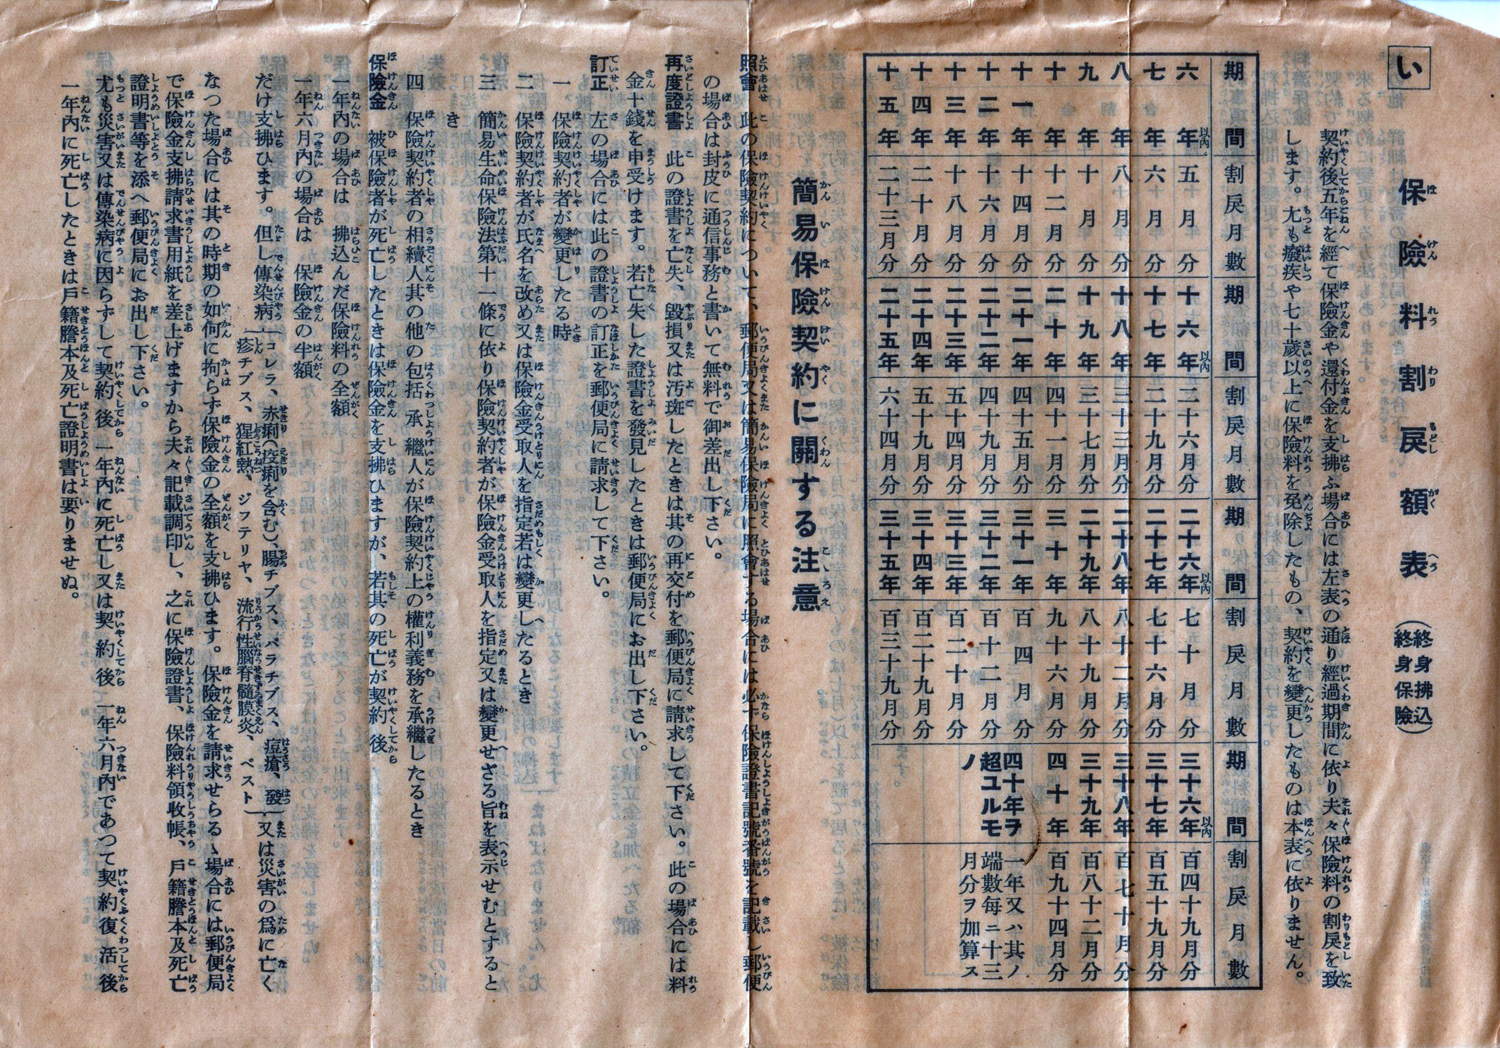 い
保險料割戾額表（終身拂込 終身保險）
契約後五年を經て保險金や還付金を支拂ふ場合には左表の通り經過期間に依り夫々保險料の割戾を致
します。尤も癈疾や七十歲以上に保險料を免除したもの、契約を變更したものは本表に依りません。
期間 割戾月數 期間 割戾月數 期間 割戾月數 期間 割戾月數
六年以內 五月分 十六年以內 二十六月分 二十六年以內 七十月分 三十六年以內 百四十九月分
七年 六月分 十七年 二十九月分 二十七年 七十六月分 三十七年 百五十九月分
八年 八月分 十八年 三十三月分 二十八年 八十二月分 三十八年 百七十月分
九年 十月分 十九年 三十七月分 二十九年 八十九月分 三十九年 百八十二月分
十年 十二月分 二十年 四十一月分 三十年 九十六月分 四十年 百九十四月分
十一年 十四月分 二十一年 四十五月分 三十一年 百四月分 四十年ヲ超ユルモノ 一年又ハ其ノ端數每ニ十三月分ヲ加算ス
十二年 十六月分 二十二年 四十九月分 三十二年 百十二月分
十三年 十八月分 二十三年 五十四月分 三十三年 百二十月分
十四年 二十月分 二十四年 五十九月分 三十四年 百二十九月分
十五年 二十三月分 二十五年 六十四月分 三十五年 百三十九月分
簡易保險契約に關する注意
照會 此の保險契約について、郵便局又は簡易保險局に照會する場合には必ず保險證書記號番號を記載し郵便
の場合は封皮に通信事務と書いて無料で御差出し下さい。
再度證書 此の證書を亡失、毀損又は汚斑したときは其の再交付を郵便局に請求して下さい。此の場合には料
金十錢を申受けます。若亡失した證書を發見したときは郵便局にお出し下さい。
訂正 左の場合には此の證書の訂正を郵便局に請求して下さい。
一 保險契約者が變更したる時
二 保險契約者が氏名を改め又は保險金受取人を指定若は變更したるとき
三 簡易生命保險法第十一條に依り保險契約者が保險金受取人を指定又は變更せざる旨を表示せむとすると
き
四 保險契約者の相續人其の他の包括承繼人が保險契約上の權利義務を承繼したるとき
保險金 被保險者が死亡したときは保險金を支拂ひますが、若其の死亡が契約後
一年內の場合は 拂込んだ保險料の全額
一年六月內の場合は 保險金の半額
だけ支拂ひます。但し傳染病（コレラ、赤痢（疫痢を含む）、腸チブス、パラチブス、痘瘡、發疹チブス、猩紅熱、ジフテリヤ、流行性腦脊髓膜炎、ペスト）又は災害の爲に亡く
なつた場合には其の時期の如何に拘らず保險金の全額を支拂ひます。保險金を請求せらるゝ場合には郵便局
で保險金支拂請求書用紙を差上げますから夫々記載調印し、之に保險證書、保險料領收帳、戶籍謄本及死亡
證明書等を添へ郵便局にお出し下さい。
尤も災害又は傳染病に因らずして契約後一年內に死亡し又は契約後一年六月內であつて契約復活後
一年內に死亡したときは戶籍謄本及死亡證明書は要りませぬ。